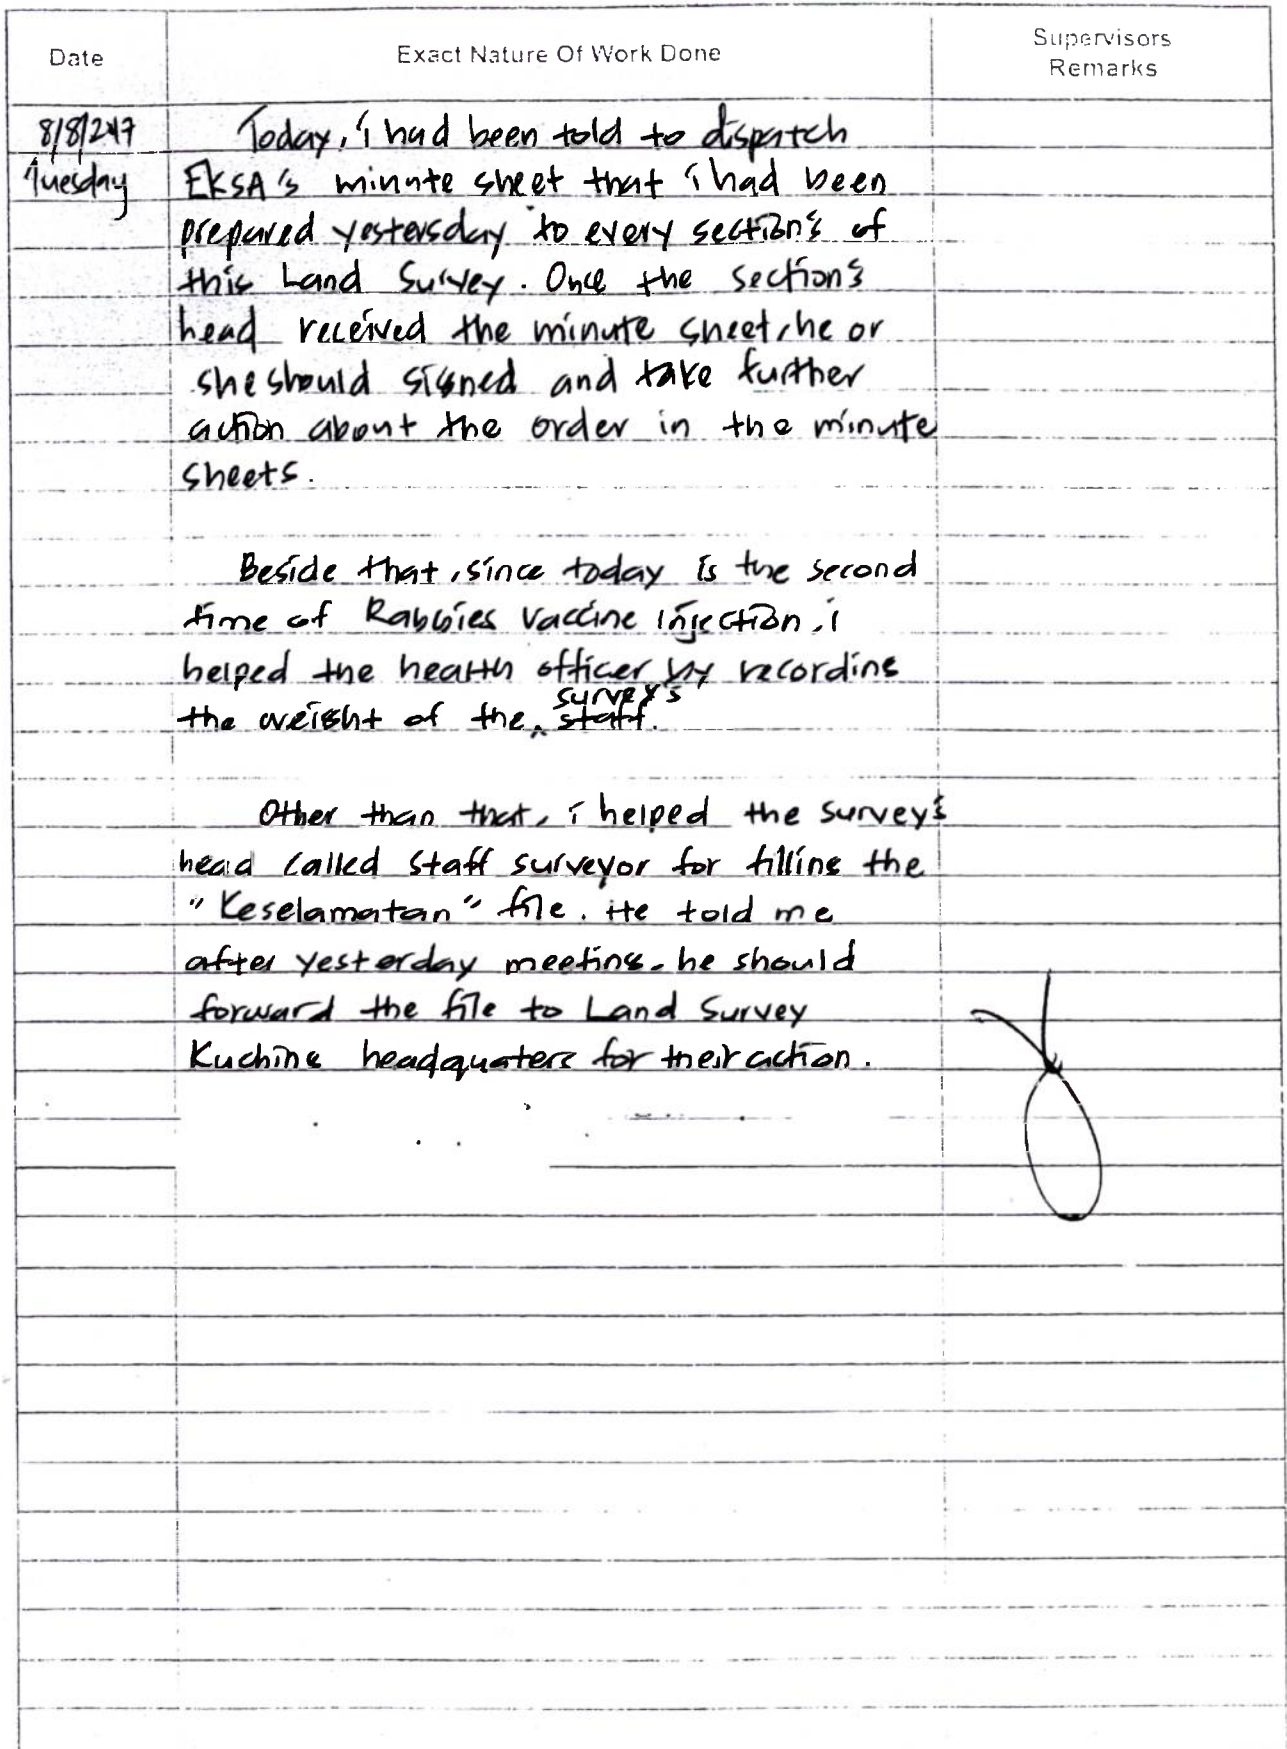 Date
Exact Nature Of Work Done
Supervisors
Remarks
8/8/2017
Tuesday
Today, i had been told to dispatch
EKSA's minute sheet that i had been
prepared yestersday to every section's of
this Land Survey. Once the section's
head received the minute sheet, he or
she should signed and take further
action about the order in the minute
sheets.
Beside that, since today is the second
time of Rabbies Vaccine injection, i
helped the health officer by recording
the weight of the survey's staff.
Other than that, i helped the survey's
head called staff surveyor for filling the
"Keselamatan" file. He told me
after yesterday meeting, he should
forward the file to Land Survey
Kuching headquaters for their action.